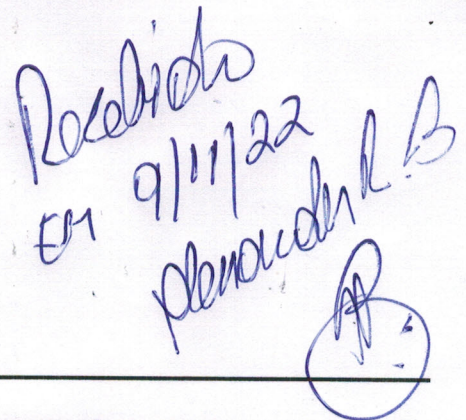 Recebido
EM 9/11/22
Alexander R. B